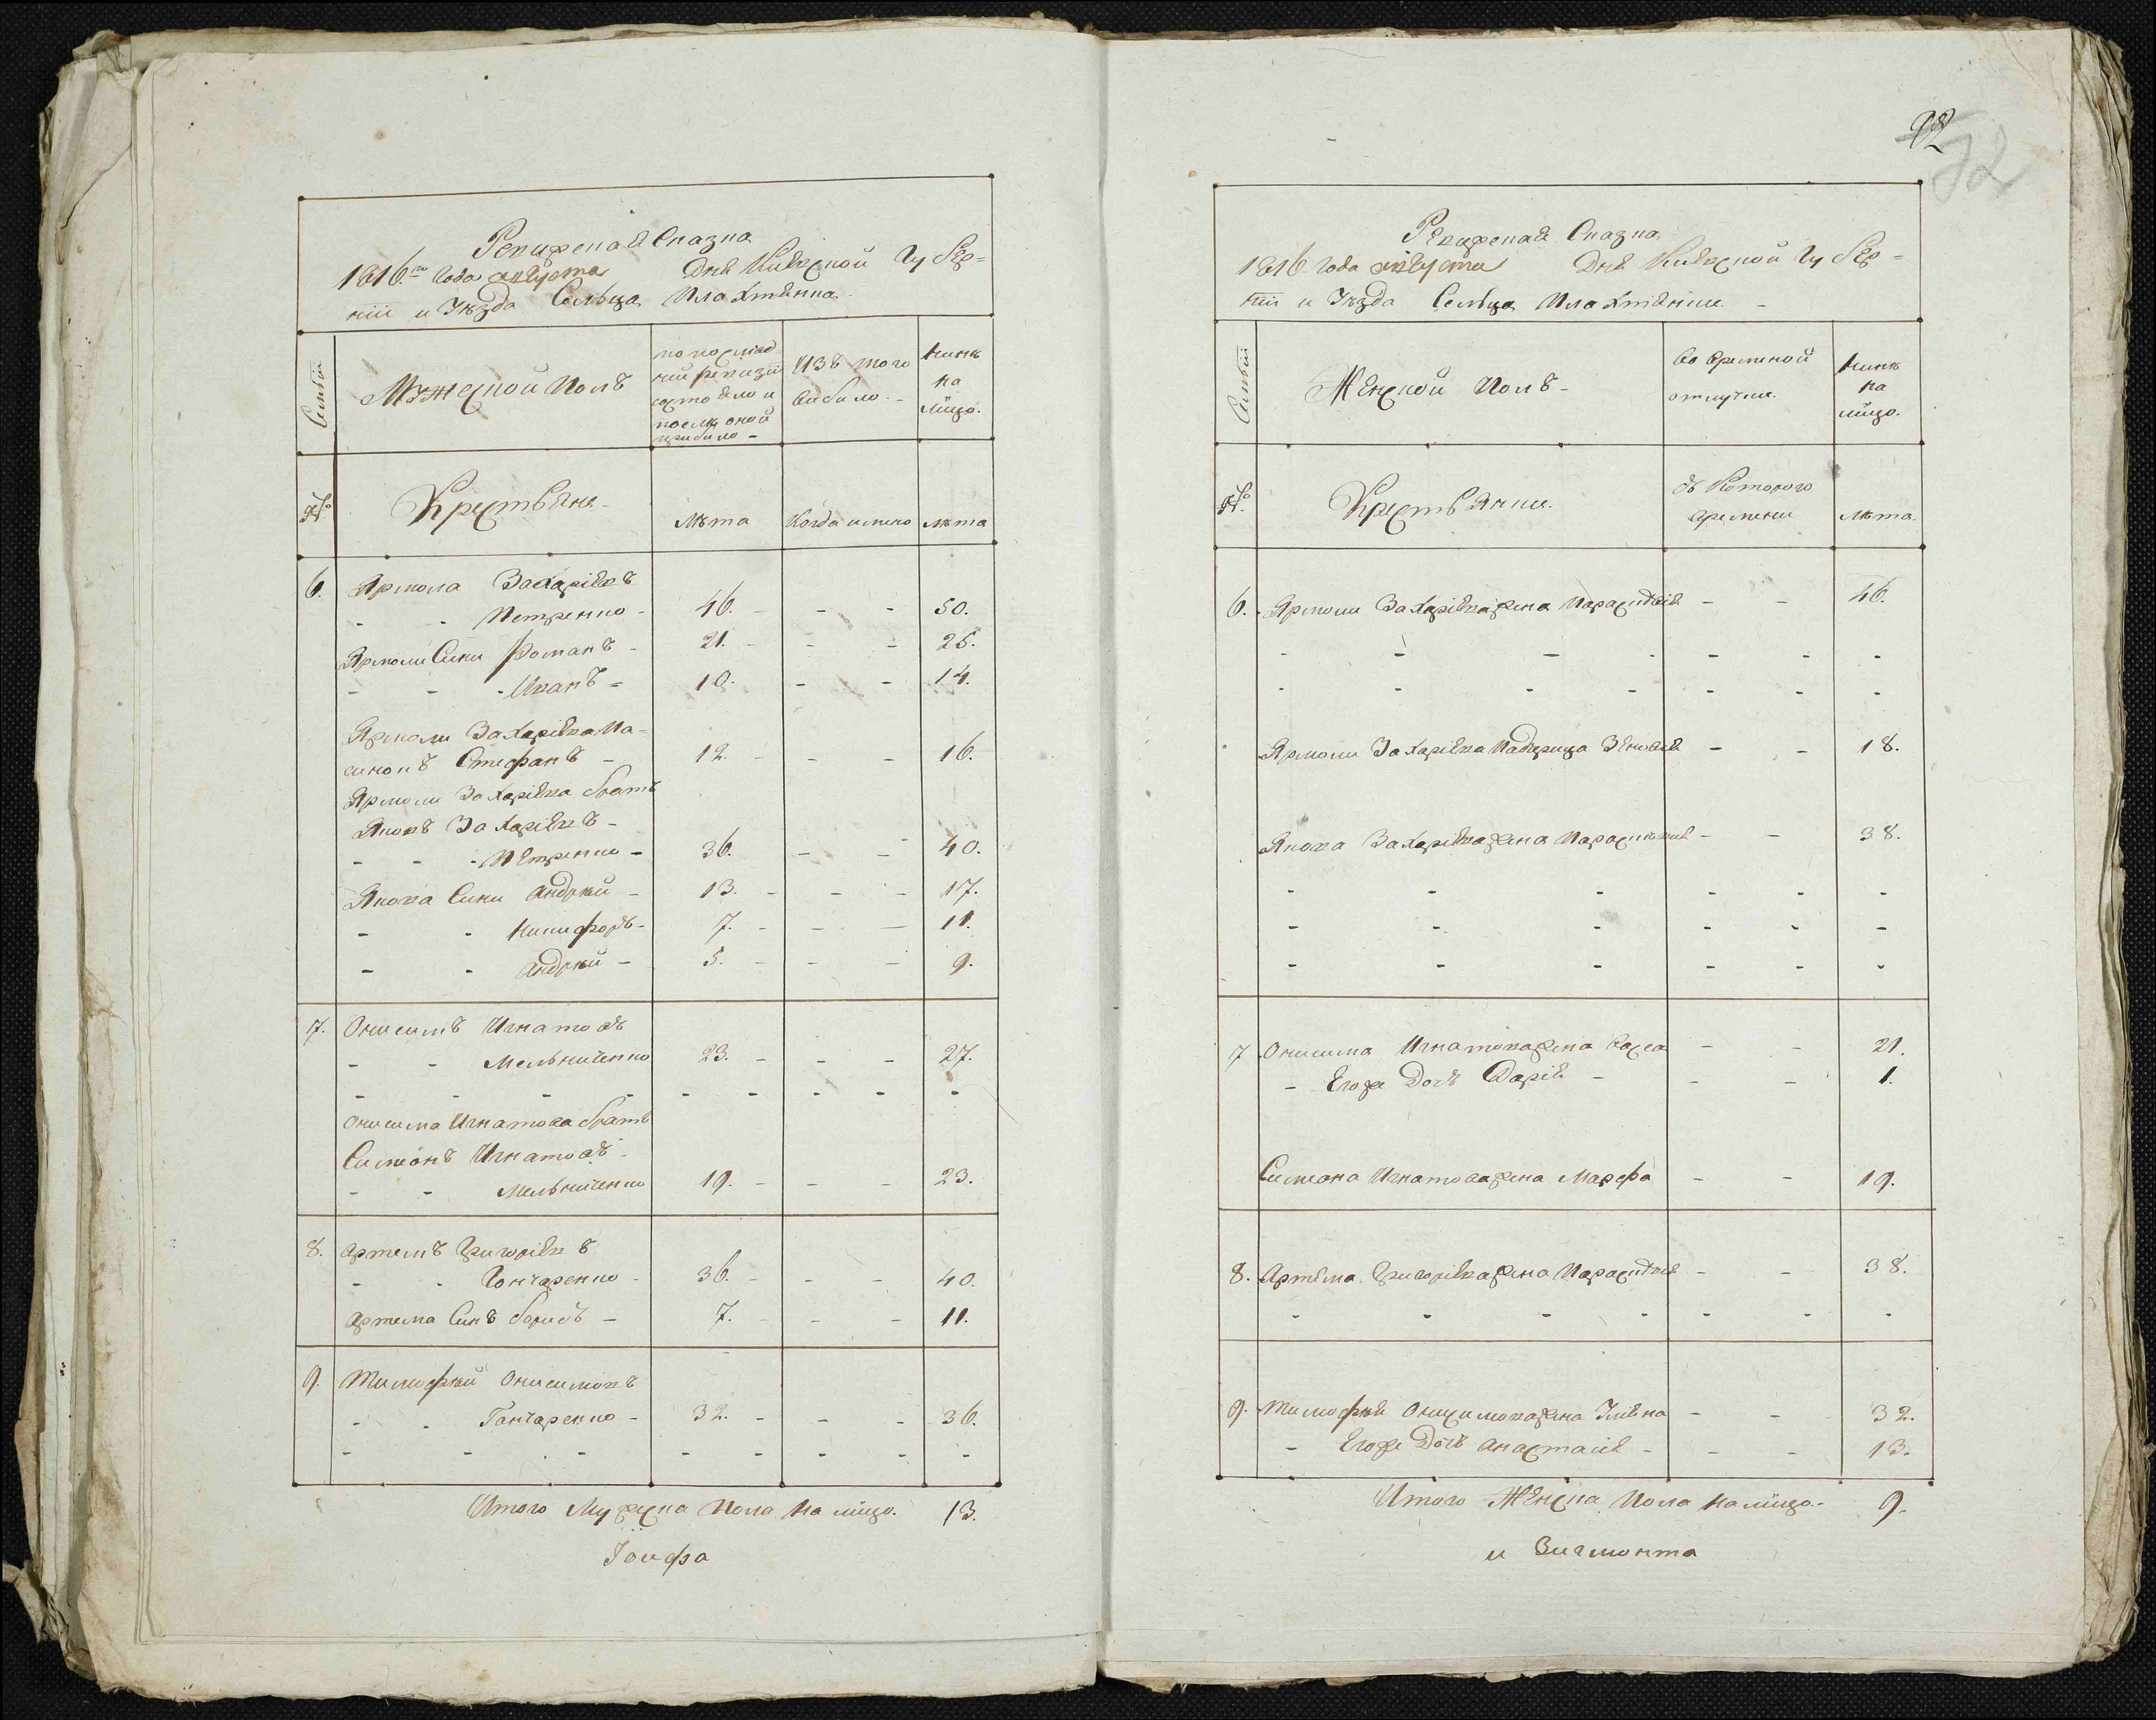 Ревизская Сказка
1816го Года августа Дня Киевской Губер=
ніи и Уезда Сельца Плахтянка
Семьи
Мужеской Полъ
по послед=
ній ревизіи
состояло и
после оной
прибыло -
изъ того
выбыло. -
Ныне
на
лицо.
№
Крестьяне -
Лета
Когда имено
лета
6. Ярмола Захаріевъ
- - Петренко - 46. - - - 50.
Ярмоли Сыны Романъ - 21. - - - 25.
- - - Иванъ - 10. - - 14.
Ярмоли Захаріева Па=
синокъ Стефанъ - 12. - - - 16.
Ярмоли Захаріева братъ
Яковъ Захаріевъ -
- - - Петренко - 36. - - 40.
Якова Сыны Андрей - 13. - - - 17.
- - Никифоръ - 7. - - - 11.
- - Андрей - 5. - - - 9.
7. Онисимъ Игнатовъ
- - Мельниченко 23. - - - 27.
- - - - - - - - -
Онисима Игнатова братъ
Симеонъ Игнатовъ -
- - Мельниченко 19. - - - 23.
8. Артемъ Григоріевъ
- - Гончаренко - 36. - - - 40.
Артема Сынъ борисъ - 7. - - - 11.
9. Тимофей Онисимовъ
- - Гончаренко - 32. - - - 36.
- - - - - - - - -
Итого Мужеска Пола На лицо. 13.
92
72
Ревизская Сказка
1816 Года августа Дня Киевской Губер=
ніи и Уезда Сельца Плахтянки -
Семьи
Женской Полъ -
Во временой
отлучки.
Ныне
на
лицо.
№
Крестьянки.
съ Которого
времени
лета.
6. Ярмоли Захаріева жена Параскевія - - 46.
- - - - - - -
- - - - - - -
Ярмоли Захаріева Падчерица - - 18.
Якова Захаріева жена Параскевія - - 38.
- - - - - -
- - - - - -
- - - - - -
7 Онисима Игнатова жена Васса - - 21.
- Егоже Дочь Дарія - - - 1.
Симеона Игнатова жена Марфа - - 19.
8. Артема Григоріева жена Параскевія - - 38.
- - - - - - -
9. Тимофея Онисимова жена Уліяна - - 32.
- Егоже Дочь Анастасія - - - 13.
Итого Женска Пола На лицо - 9.
и Зигмонта